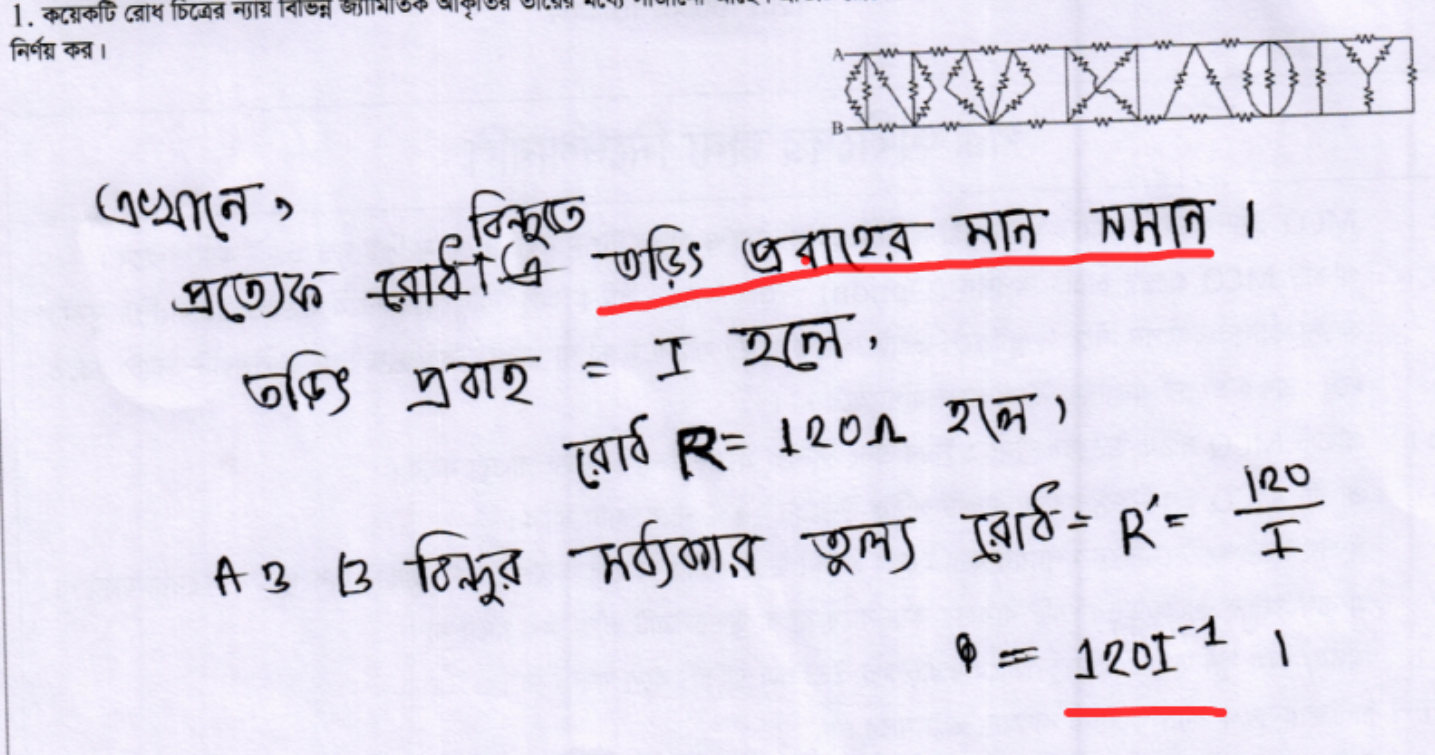 1. কয়েকটি রোধ চিত্রের ন্যায় বিভিন্ন জ্যামিতিক আকৃতির তারের মধ্যে
নির্ণয় কর।
A
B
এখানে,
বিন্দুতে
প্রত্যেক তড়িৎ প্রবাহের মান সমান।
তড়িৎ প্রবাহ = I হলে,
রোধ R = 120Ω হলে,
A ও B বিন্দুর মধ্যকার তুল্য রোধ = R' = 120/I
= 120I⁻¹ ।